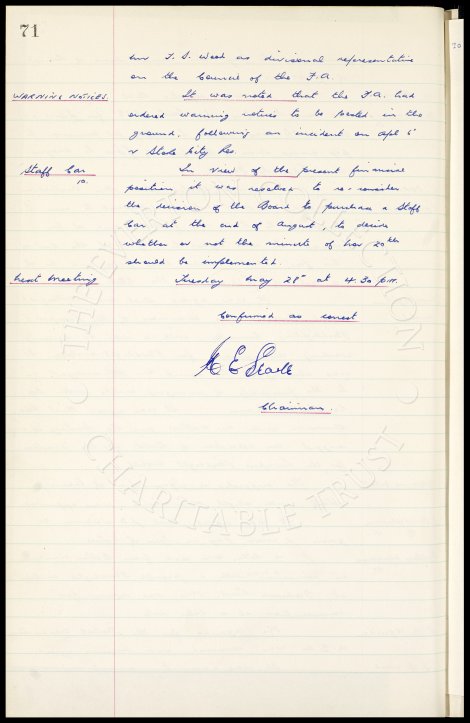 71
Mr T. S. Wood as divisional representative
on the Council of the F.A.
WARNING NOTICES. It was noted that the F.A. had
ordered warning notices to be posted in the
ground, following an incident on Apl 6"
v Stoke City Res.
Staff Car In view of the present financial
10.
position it was resolved to re-consider
the decision of the Board to purchase a Staff
Car, at the end of August, to decide
whether or not the minute of Nov 20th
should be implemented.
Next Meeting Tuesday May 28" at 4.30 p.m.
Confirmed as correct
Chairman.
THE COLLECTION
CHARITABLE TRUST